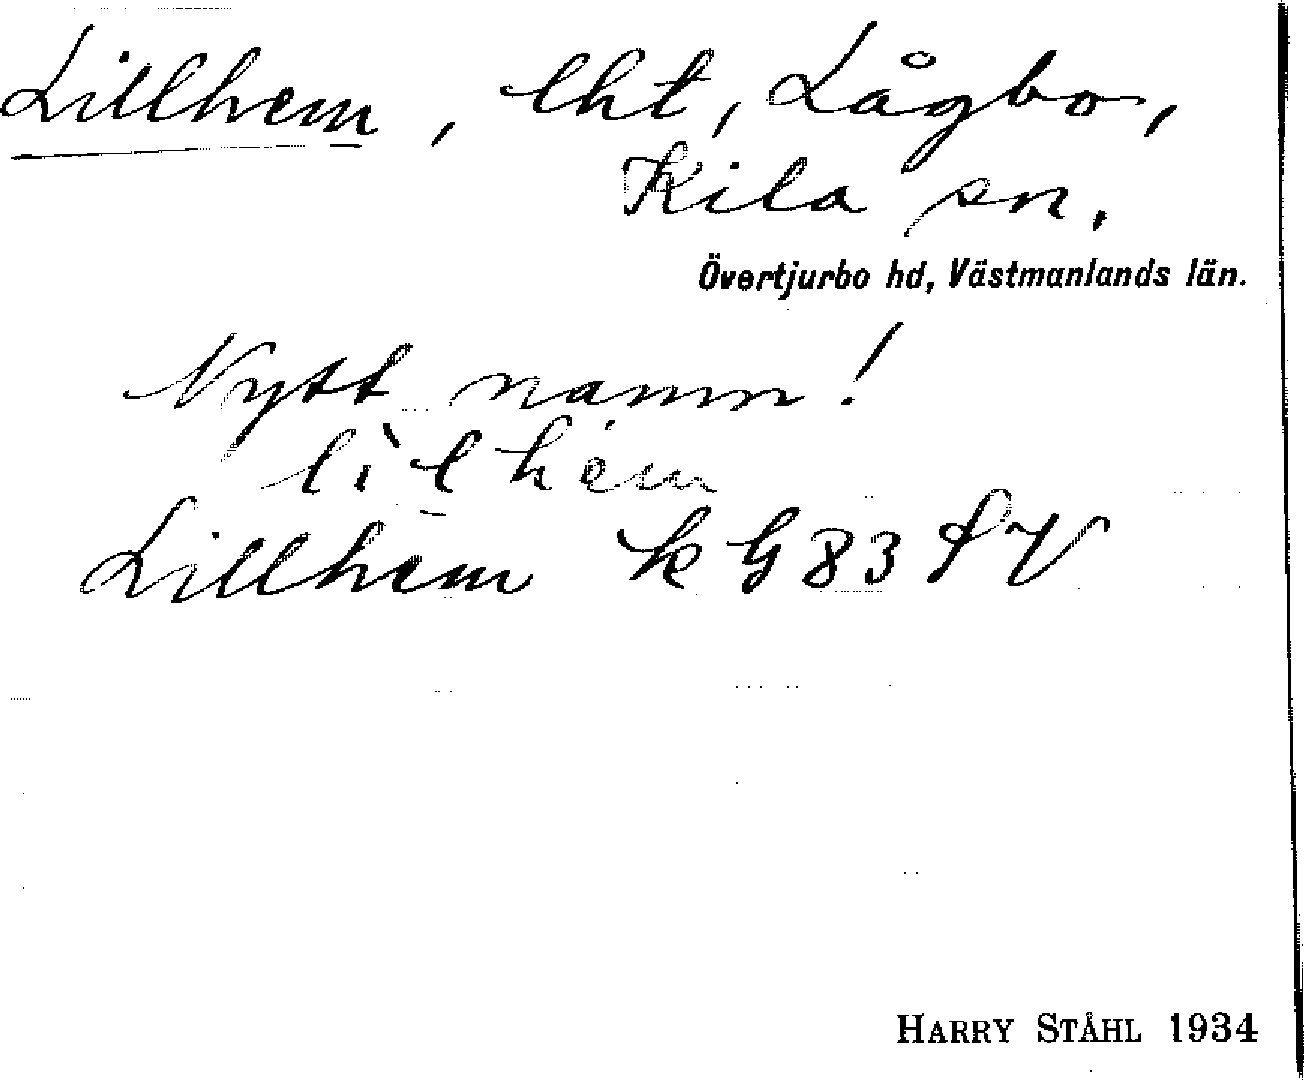 Lillhem, lht, Lågbo,
Kila sn.
Övertjurbo hd, Västmanlands län.
Nytt namn!
lìlhem
Lillhem k G 83 SV
HARRY STÅHL 1934